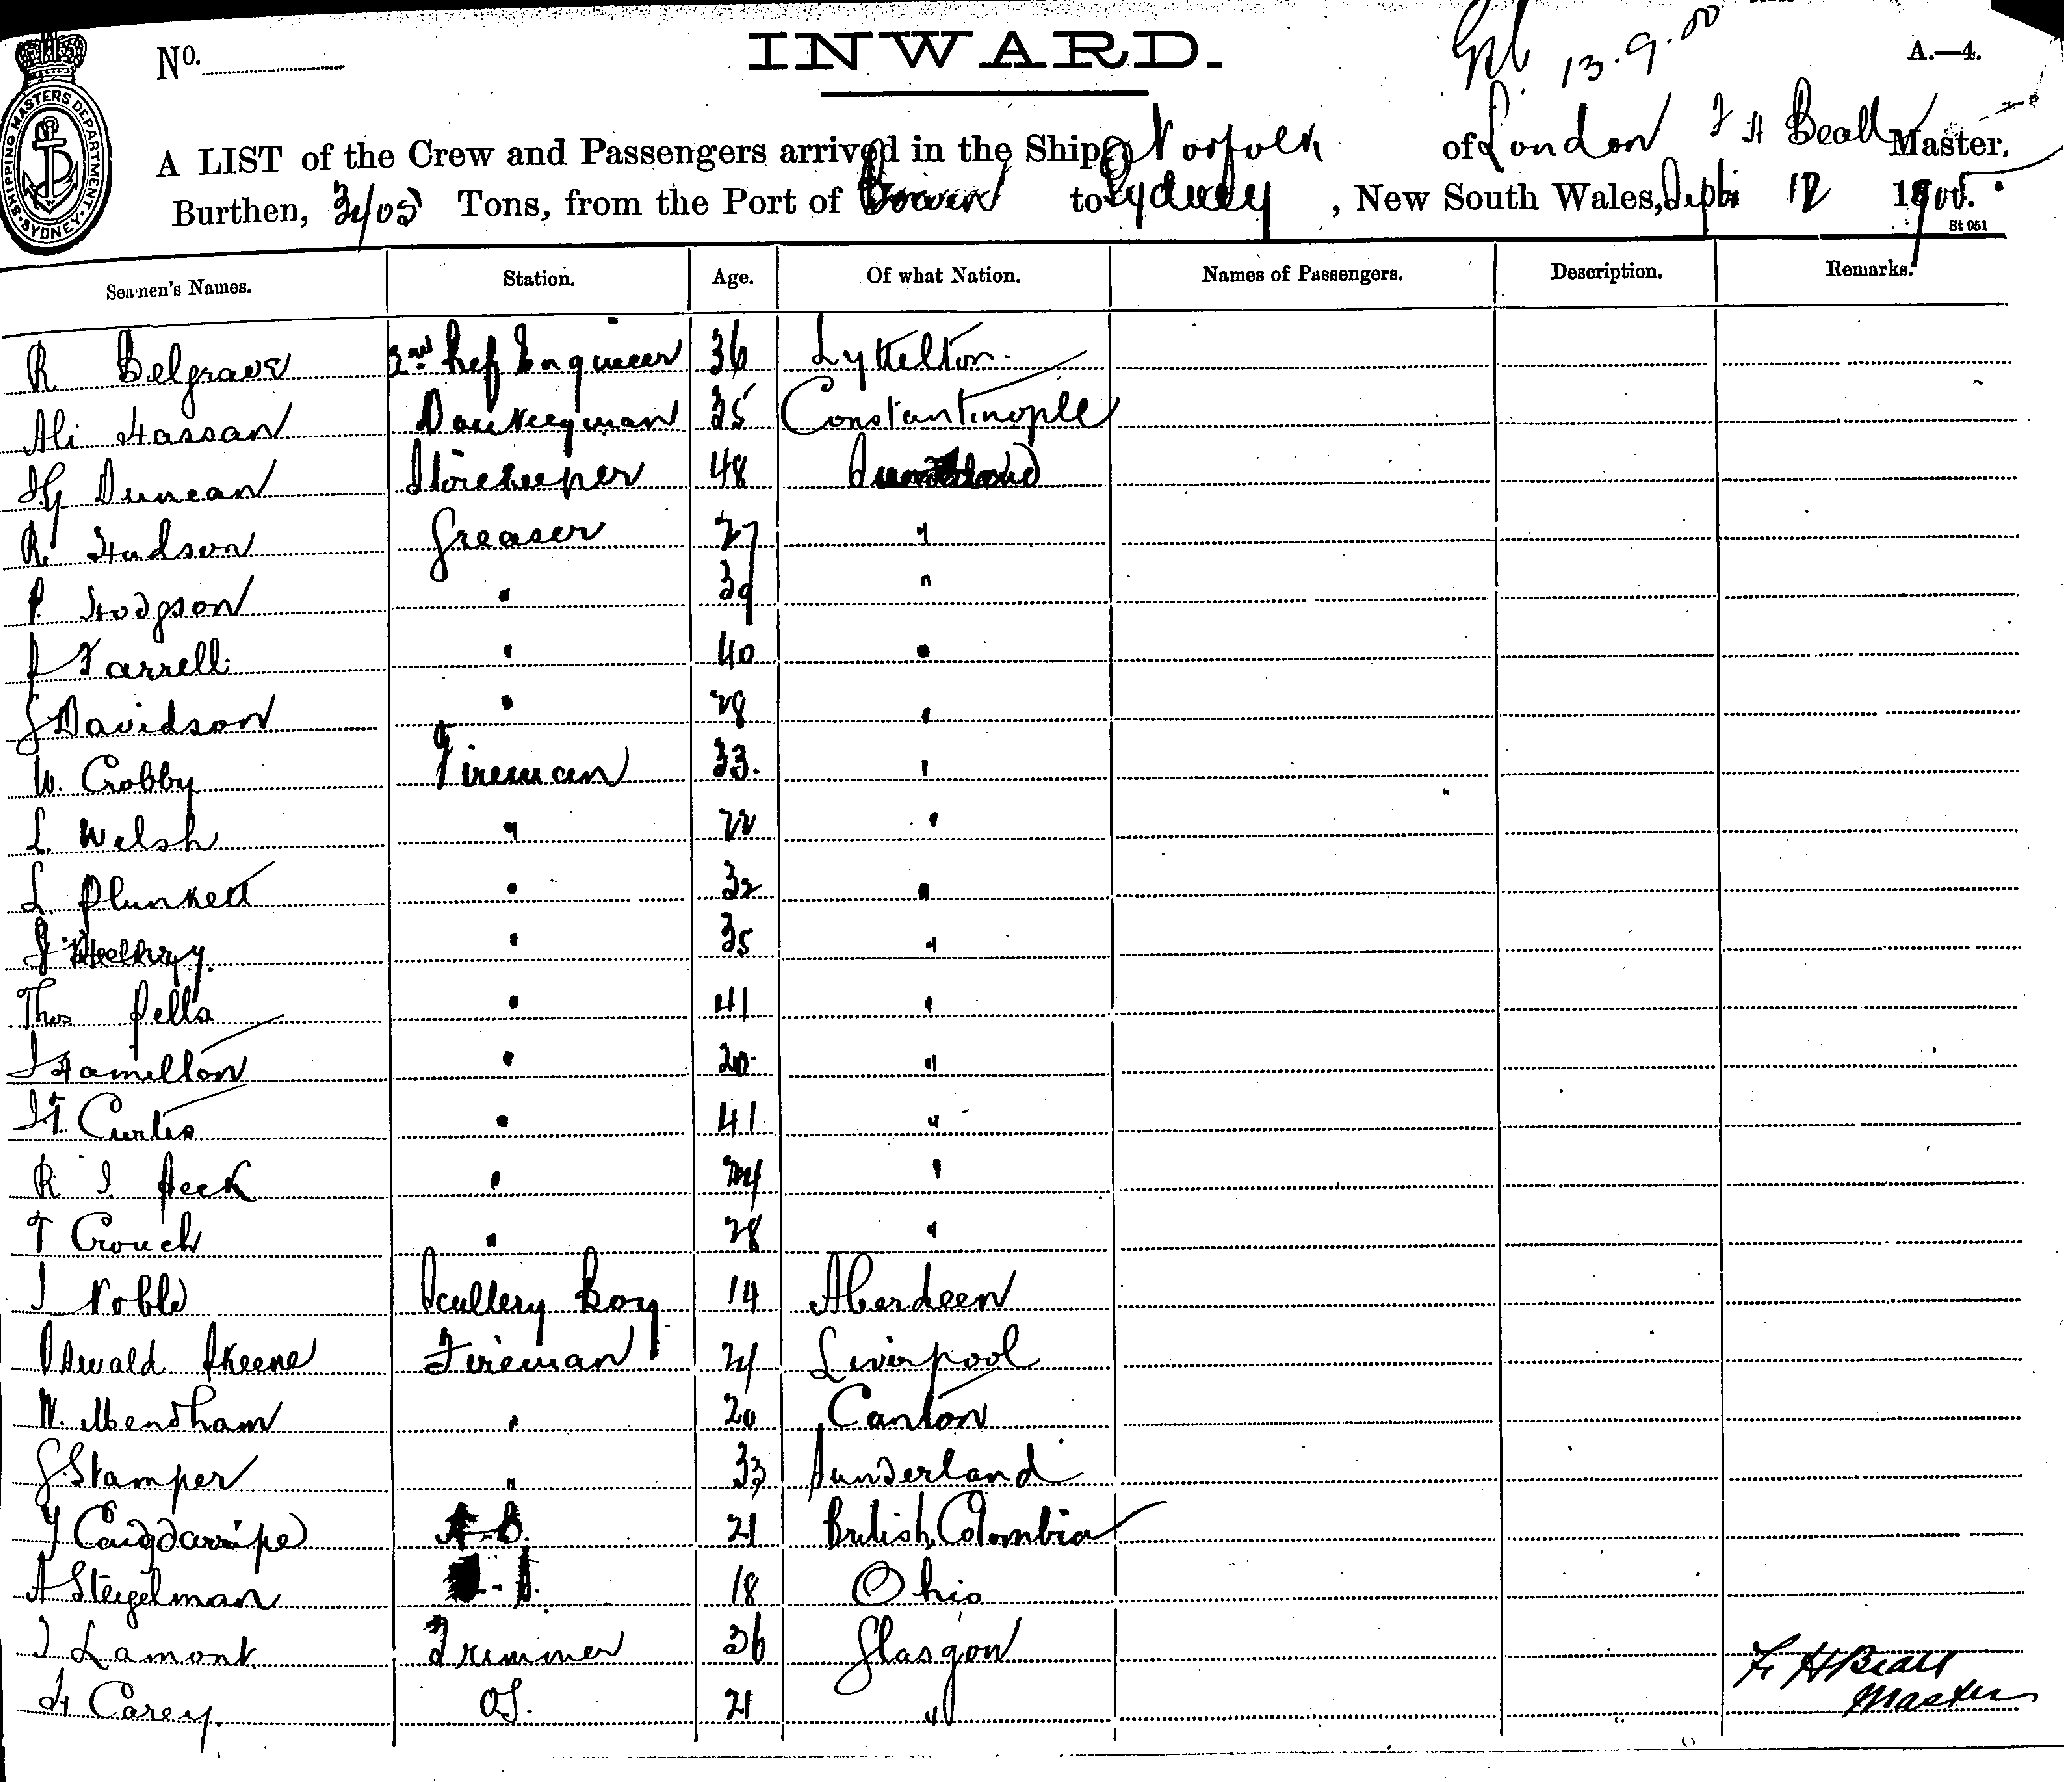 No. INWARD. 13.9.00 A.—4.
SHIPPING MASTERS DEPARTMENT SYDNEY
A LIST of the Crew and Passengers arrived in the Ship Norfolk of London F H Beall Master,
Burthen, Tons, from the Port of to Sydney, New South Wales, Septr 12 1900.
St 051
Seamen's Names. Station. Age. Of what Nation. Names of Passengers. Description. Remarks.
R Belgrave 2nd Ref Engineer 36 Lyttelton
Ali Hassan Donkeyman 35 Constantinople
Duncan Storekeeper 48
R. Hudson Greaser 27 "
P. Hodgson " 39 "
J Farrell " 40 "
J Davidson " 28 "
W. Crobby Fireman 33. "
L. Welsh " 22 "
L. Plunkett " 32 "
" 35 "
Thos Pells " 41 "
J Hamilton " 20 "
H Curtis " 41 "
R J. Peck " 24 "
T Crouch " 28 "
J Noble Scullery Boy 14 Aberdeen
Oswald Skeene Fireman 21 Liverpool
W. Mendham " 20 Canton
G Stamper " 33 Sunderland
A.B. 21 British Colombia
A Steigelman 18 Ohio
J Lamont Trimmer 36 Glasgow
H Carey. OS. 21 "
F. H Beall
Master